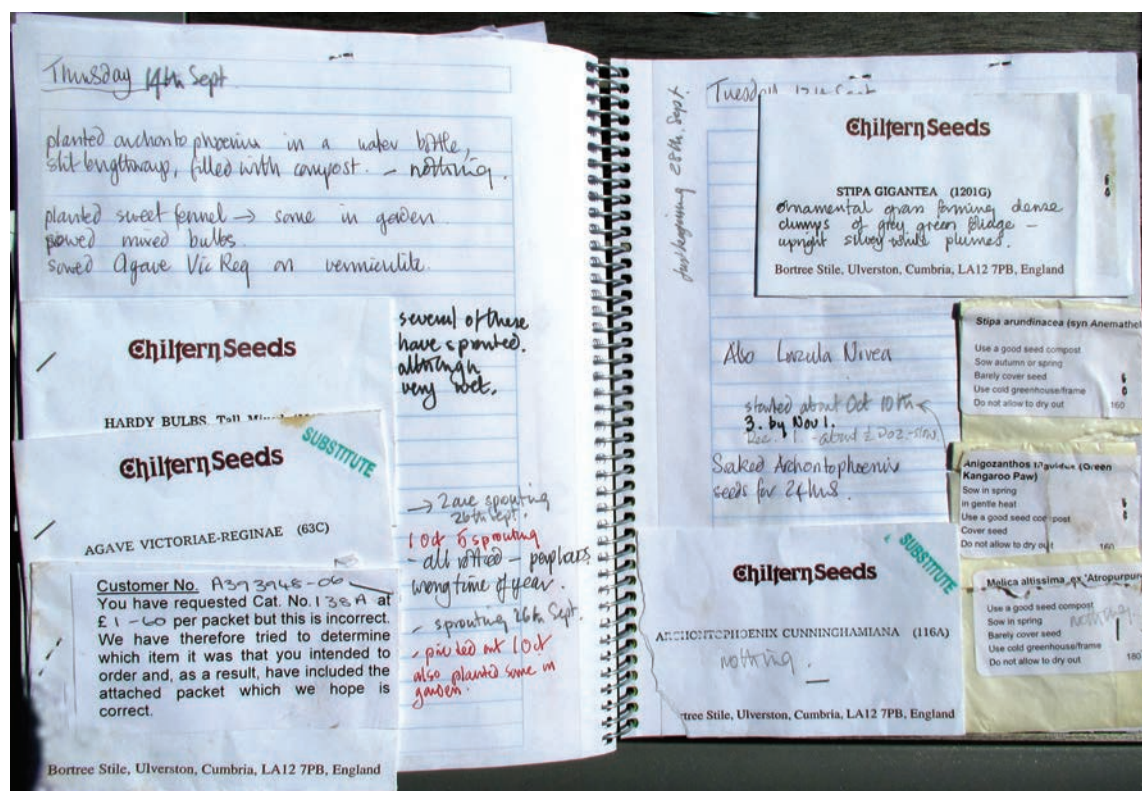 Thursday 14th Sept
planted archontophoenix in a water bottle,
slit lengthways, filled with compost. – nothing.
planted sweet fennel → some in garden
sowed mixed bulbs.
sowed Agave Vic Reg on vermiculite.
Chiltern Seeds
HARDY BULBS, Tall
several of these
have sprouted.
although
very wet.
Chiltern Seeds
SUBSTITUTE
AGAVE VICTORIAE-REGINAE (63C)
→ 2 are sprouting
26th Sept.
1 Oct 5 sprouting
- all rotted – perhaps
wrong time of year.
- sprouting 26th Sept.
- pricked out 1 Oct
also planted some in
garden.
Customer No. A373948-06
You have requested Cat. No. 138A at
£ 1-60 per packet but this is incorrect.
We have therefore tried to determine
which item it was that you intended to
order and, as a result, have included the
attached packet which we hope is
correct.
Bortree Stile, Ulverston, Cumbria, LA12 7PB, England
Tuesday 12th Sept
just beginning 28th. Sept.
Chiltern Seeds
STIPA GIGANTEA (1201G)
ornamental grass forming dense
clumps of grey green foliage –
upright silvery white plumes.
Bortree Stile, Ulverston, Cumbria, LA12 7PB, England
Also Luzula Nivea
started about Oct 10th
3. by Nov 1.
Dec. 1. - about ½ Doz. - slow
Soaked Archontophoenix
seeds for 24hrs.
Stipa arundinacea (syn Anemathe
Use a good seed compost
Sow autumn or spring
Barely cover seed
Use cold greenhouse/frame
Do not allow to dry out 160
Anigozanthos (Green
Kangaroo Paw)
Sow in spring
in gentle heat
Use a good seed compost
Cover seed
Do not allow to dry out 160
Melica altissima 'Atropurpur
Use a good seed compost
Sow in spring
nothing.
Barely cover seed
Use cold greenhouse/frame
Do not allow to dry out 180
Chiltern Seeds
SUBSTITUTE
ARCHONTOPHOENIX CUNNINGHAMIANA (116A)
nothing.
tree Stile, Ulverston, Cumbria, LA12 7PB, England